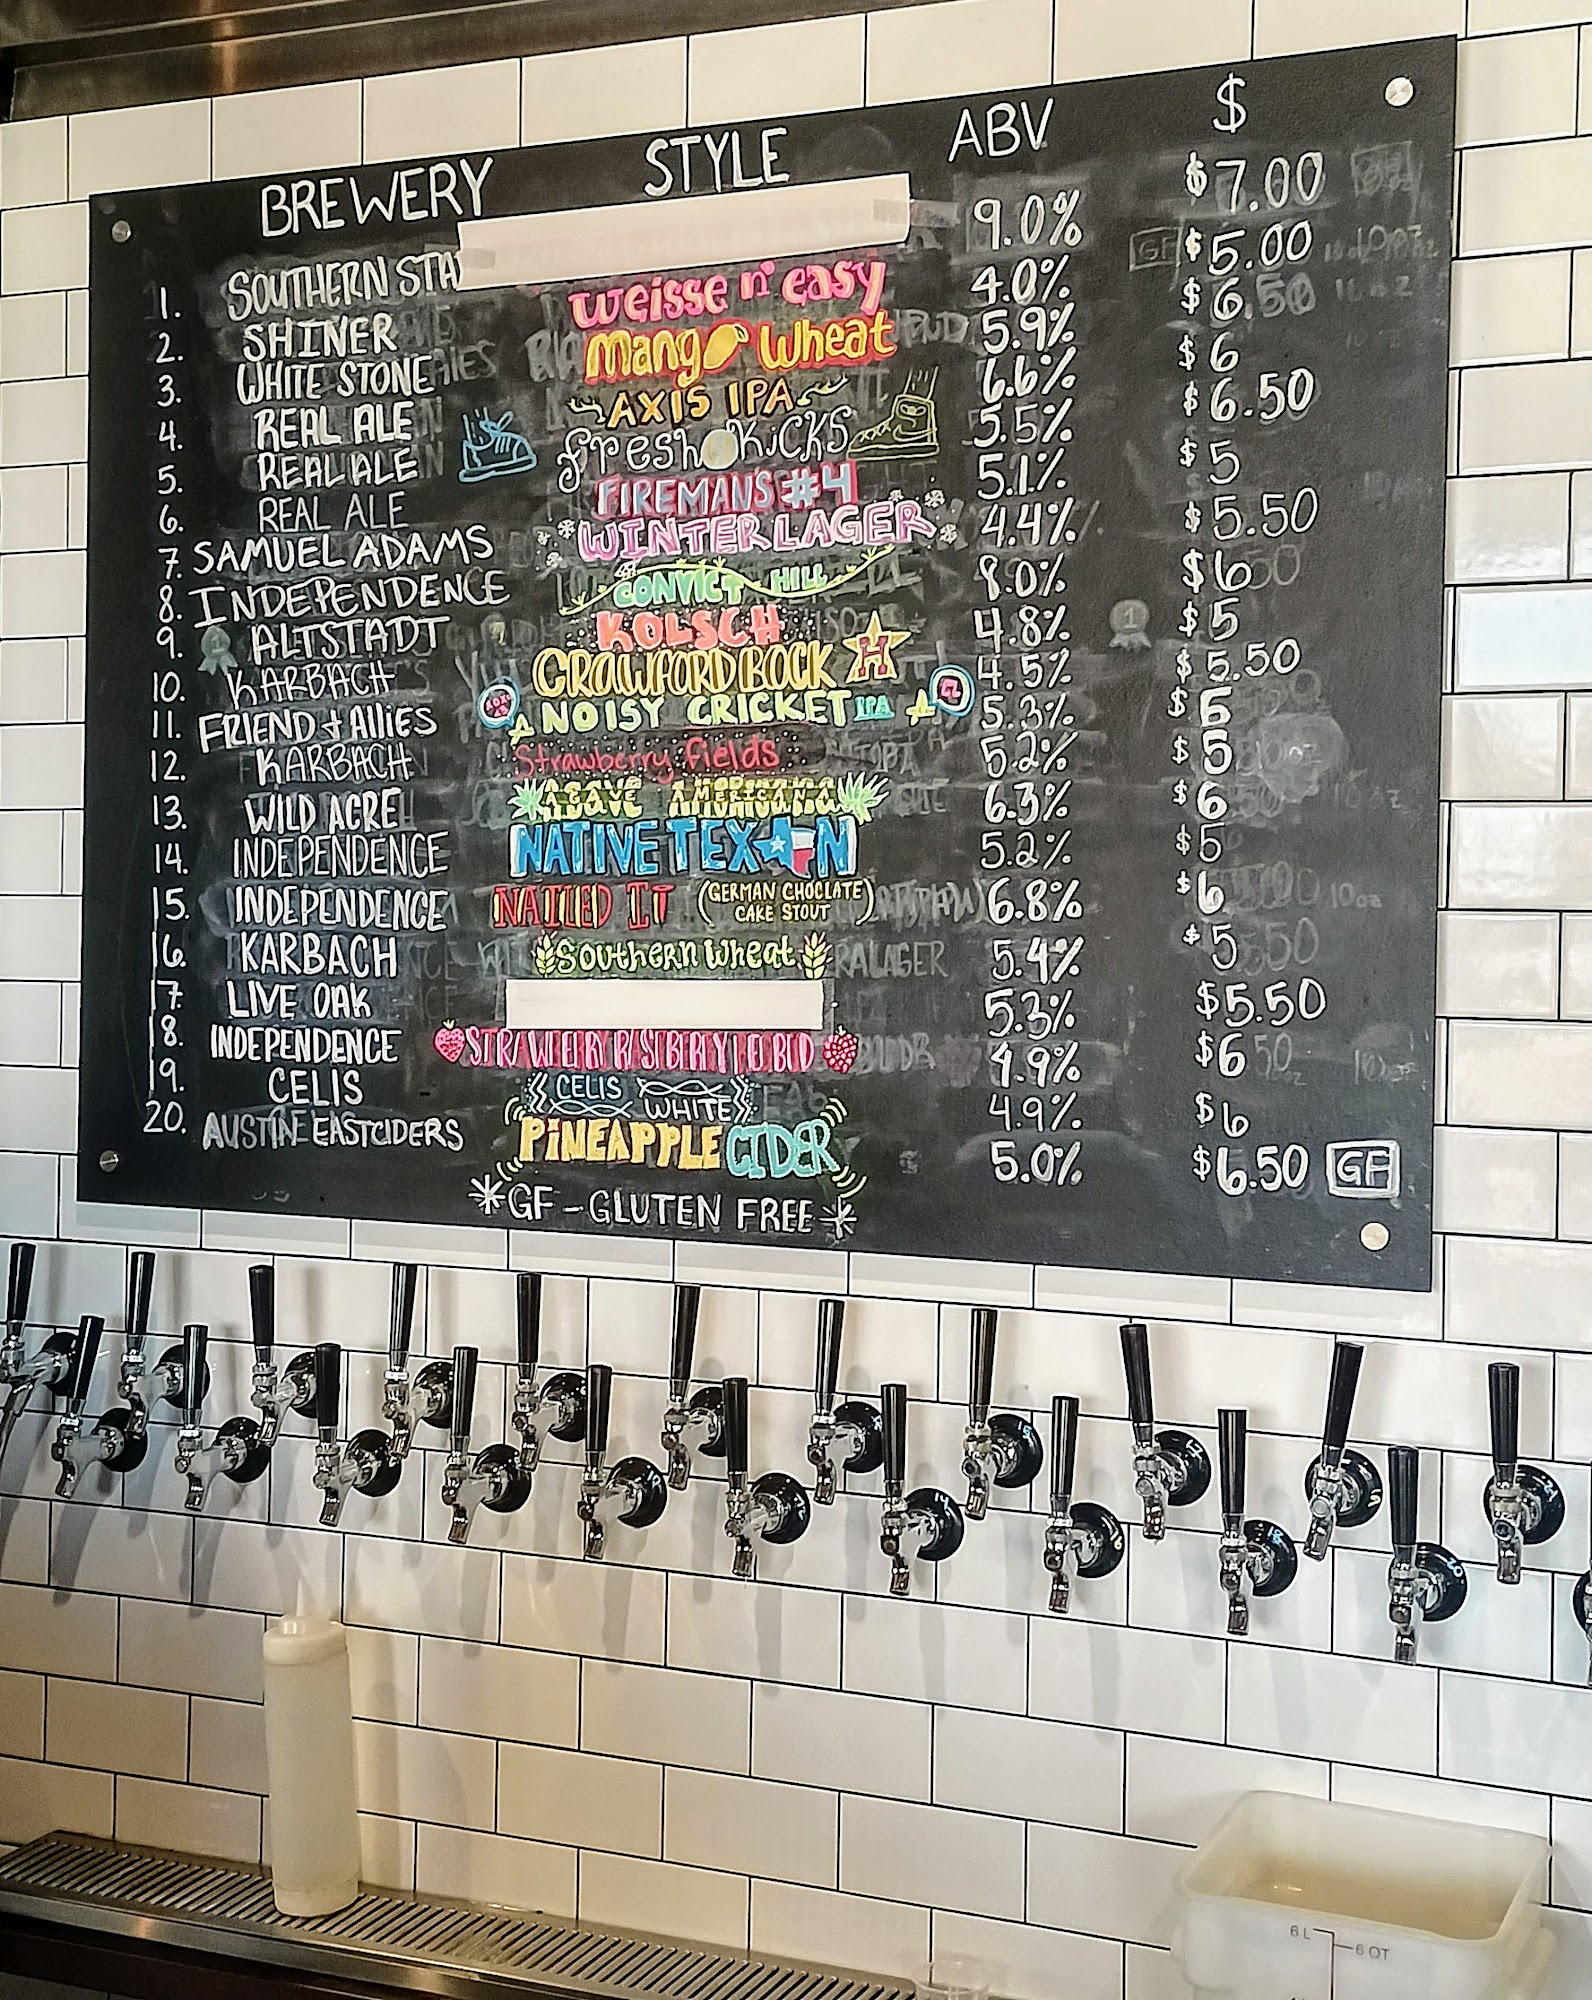 BREWERY STYLE ABV $
1. SOUTHERN STA 9.0% $7.00
2. SHINER Weisse n' easy 4.0% $5.00
3. WHITE STONE Mango Wheat 5.9% $6.50
4. REAL ALE AXIS IPA 6.6% $6
5. REAL ALE fresh KICKS 5.5% $6.50
6. REAL ALE FIREMAN'S #4 5.1% $5
7. SAMUEL ADAMS WINTER LAGER 4.4% $5.50
8. INDEPENDENCE CONVICT HILL 8.0% $6
9. ALTSTADT KOLSCH 4.8% $5
10. KARBACH CRAWFORD BOCK H 4.5% $5.50
11. FRIEND & AllIES NOISY CRICKET IPA 5.3% $
12. KARBACH Strawberry fields 5.2% $5
13. WILD ACRE AGAVE AMERICANA 6.3% $6
14. INDEPENDENCE NATIVE TEXAN 5.2% $5
15. INDEPENDENCE NAILED IT (GERMAN CHOCLATE CAKE STOUT) 6.8% $6
16. KARBACH Southern Wheat 5.4% $5
17. LIVE OAK 5.3% $5.50
18. INDEPENDENCE STRAWBERRY RASPBERRY REDBUD 4.9% $6
19. CELIS CELIS WHITE 4.9% $6
20. AUSTIN EASTCIDERS PINEAPPLE CIDER 5.0% $6.50 GF
*GF - GLUTEN FREE*
6 L 6 QT